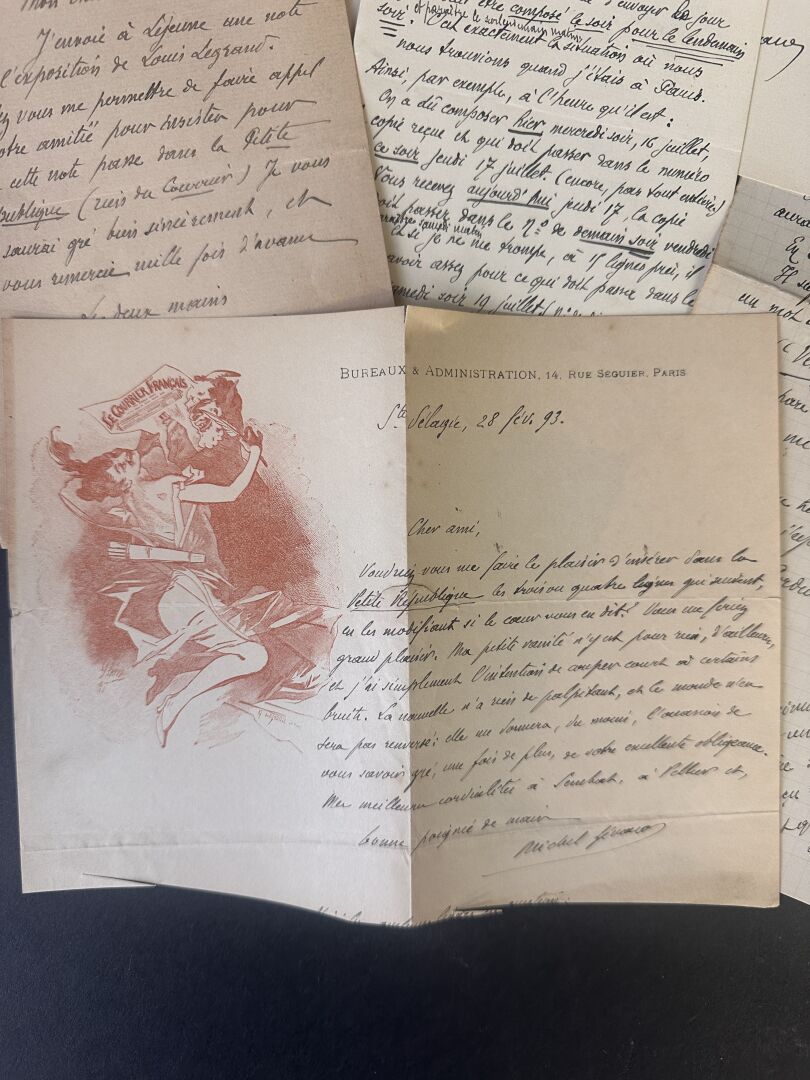 J'envoie à Lejeune une note
l'exposition de Louis Legrand.
vous me permettre de faire appel
otre amitié pour insister pour
cette note passe dans la Petite
publique (rien du Courrier) Je vous
saurai gré bien sincèrement, et
vous remercie mille fois d'avance
Les deux mains
envoyer le jour
être composé le soir pour le lendemain
et paraître le surlendemain matin
soir. C'est exactement la situation où nous
nous trouvions quand j'étais à Paris.
Ainsi, par exemple, à l'heure qu'il est :
On a dû composer hier mercredi soir, 16 juillet,
copie reçue et qui doit passer dans le numéro
ce soir jeudi 17 juillet. (encore, pas tout entière)
Vous recevez aujourd'hui jeudi 17, la copie
doit passer dans le n° de demain soir vendredi
samedi matin
Et si je ne me trompe, à 15 lignes près, il
avoir assez pour ce qui doit passer dans le
samedi soir 19 juillet
un mot
LE COURRIER FRANÇAIS
BUREAUX & ADMINISTRATION, 14, RUE SEGUIER, PARIS
Ste Pélagie, 28 fév. 93.
Cher ami,
Voudriez vous me faire le plaisir d'insérer dans la
Petite République les trois ou quatre lignes qui suivent,
en les modifiant si le cœur vous en dit ? Vous me feriez
grand plaisir. Ma petite vanité n'y est pour rien, d'ailleurs,
et j'ai simplement l'intention de couper court à certains
bruits. La nouvelle n'a rien de palpitant, et le monde n'en
sera pas renversé : elle me donnera, du moins, l'occasion de
vous savoir gré, une fois de plus, de votre excellente obligeance.
Mes meilleures cordialités à Sembat, à Pellier et,
bonne poignée de main
Michel Zévaco